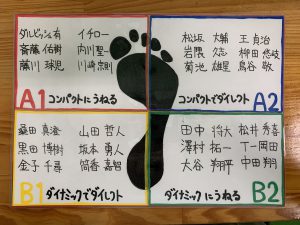 ダルビッシュ有 イチロー
斎藤 佑樹 内川聖一
藤川 球児 川崎宗則
A1 コンパクトにうねる
松坂 大輔 王 貞治
岩隈 久志 柳田 悠岐
菊池 雄星 鳥谷 敬
コンパクトでダイレクト A2
桑田 真澄 山田 哲人
黒田 博樹 坂本 勇人
金子 千尋 筒香 嘉智
B1 ダイナミックでダイレクト
田中 将大 松井 秀喜
澤村 拓一 T-岡田
大谷 翔平 中田 翔
ダイナミックにうねる B2